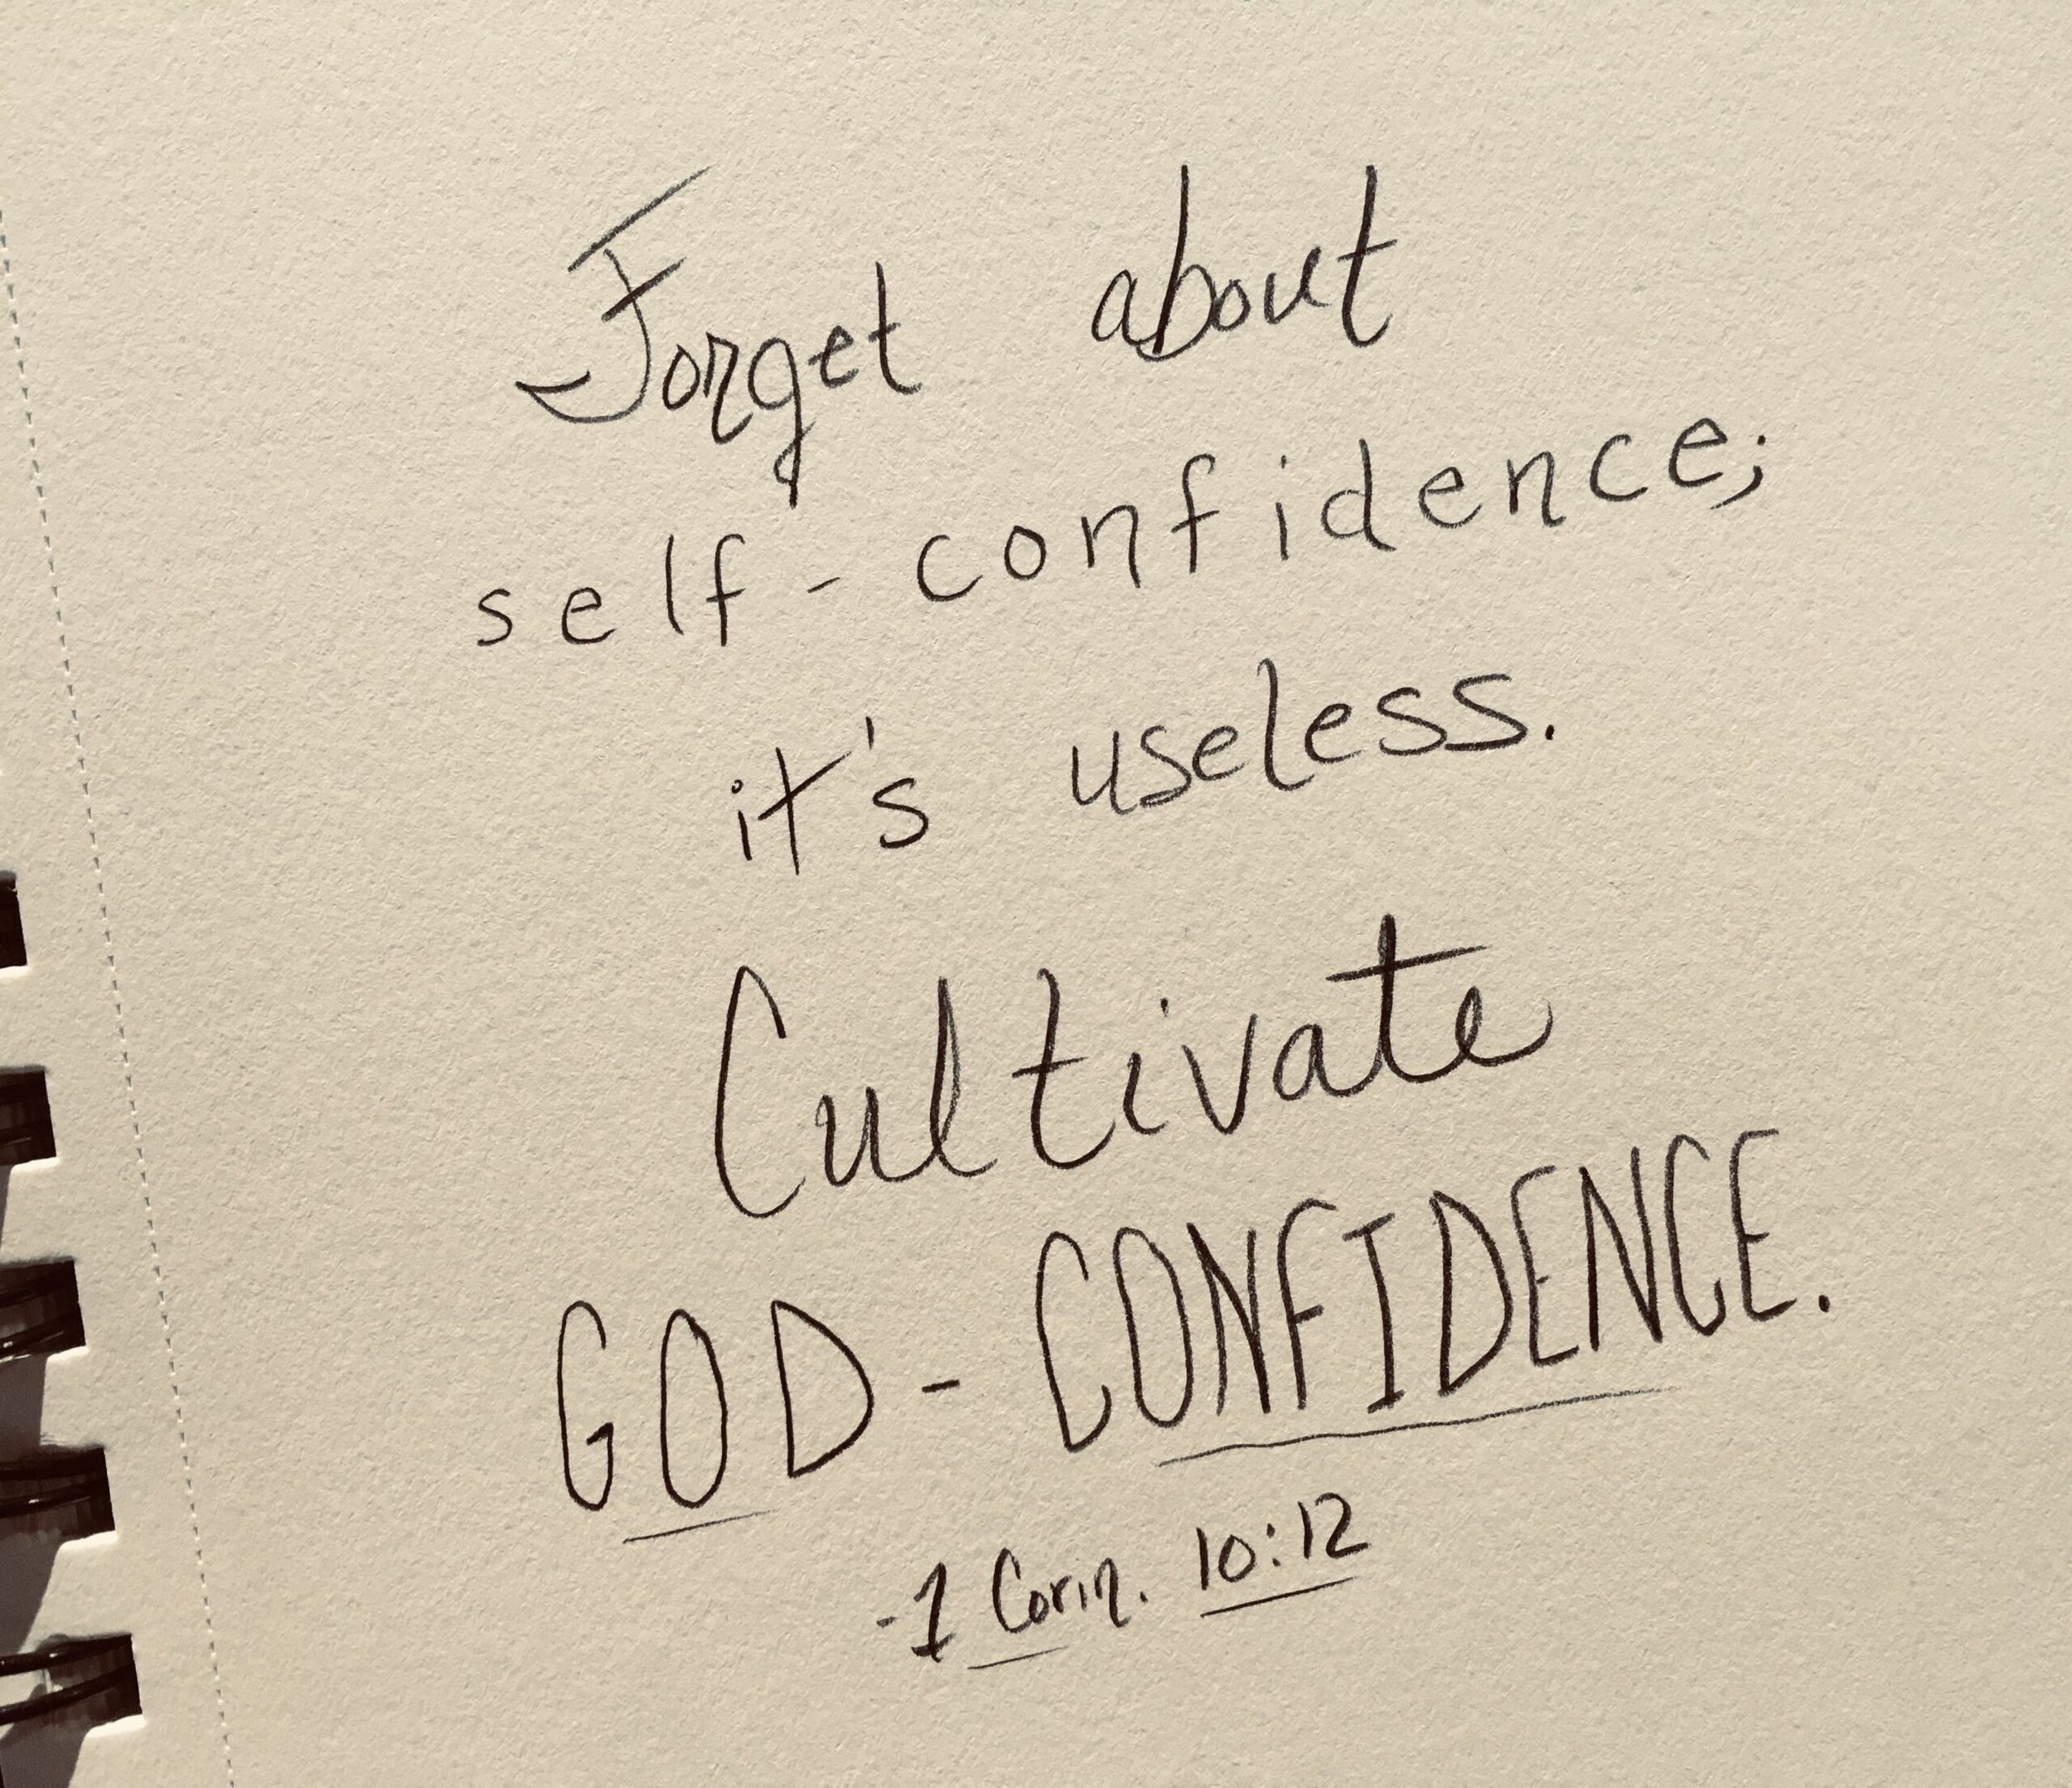 Forget about
self-confidence;
it's useless.
Cultivate
GOD-CONFIDENCE.
-1 Corin. 10:12